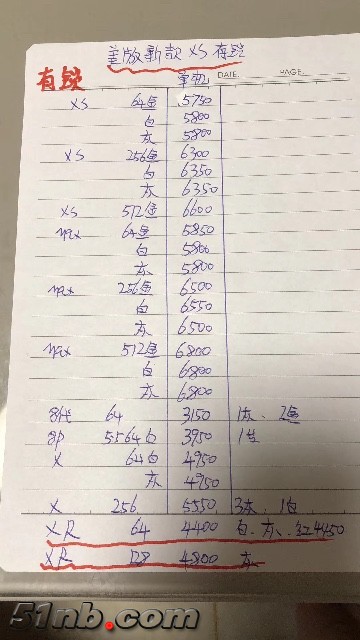 美版新款 XS 有锁
有锁 单机 DATE PAGE
XS 64金 5750
白 5800
灰 5800
XS 256金 6300
白 6350
灰 6350
XS 512金 6600
max 64金 5850
白 5800
灰 5800
max 256金 6500
白 6550
灰 6500
max 512金 6800
白 6800
灰 6800
8代 64 3150 1灰、2金
8P 64白 3950
X 64白 4950
灰 4950
X 256 5550 3灰、1白
XR 64 4400 白、灰、红4450
XR 128 4800 灰
51nb.com